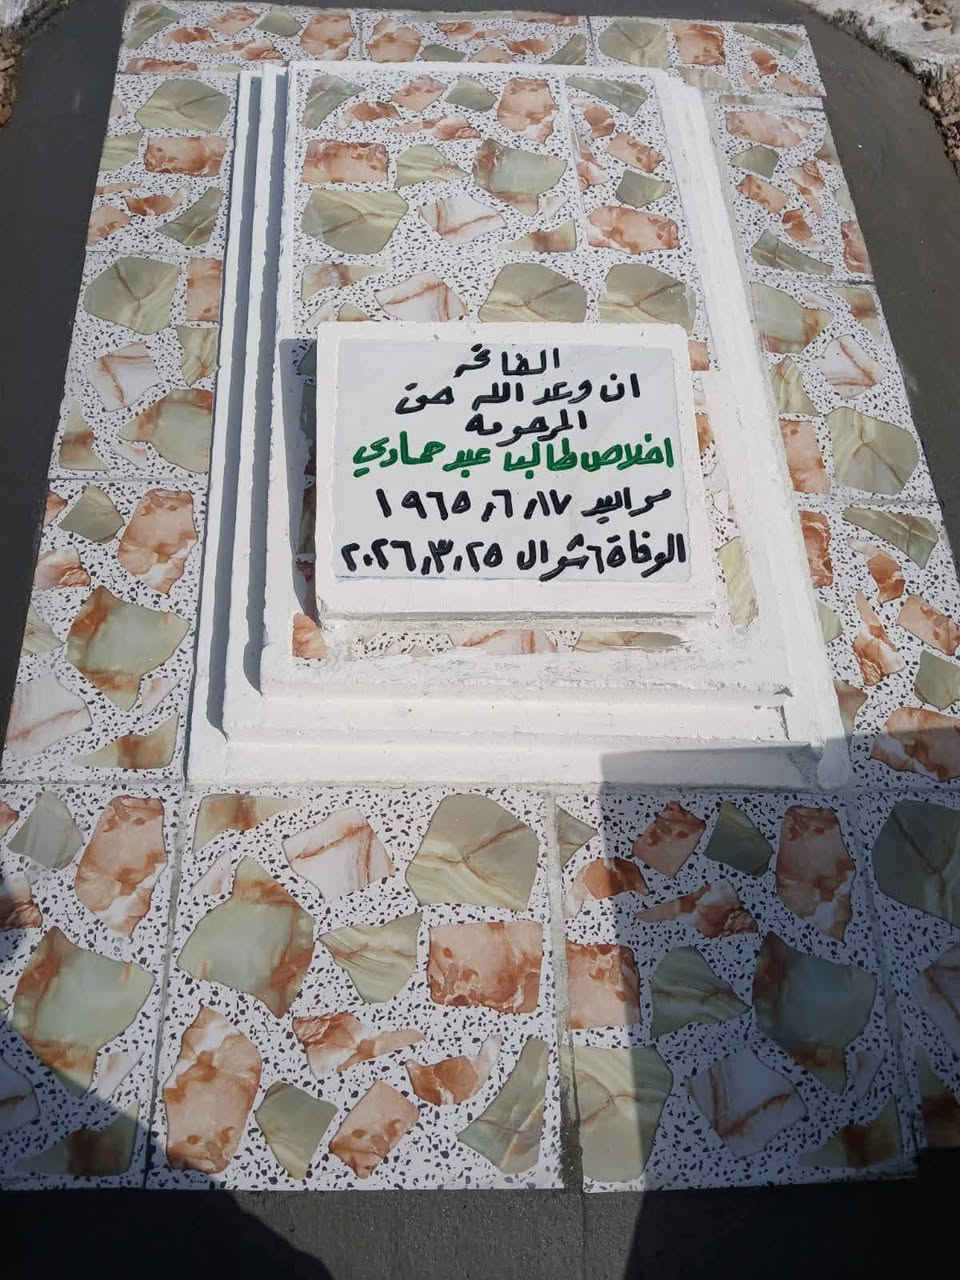 الفاتحه
ان وعد الله حق
المرحومه
اخلاص طالب عبد حمادي
مواليد ١٩٦٥،٦،١٧
الوفاة ٦ شوال ٢٠٢٦،٣،٢٥